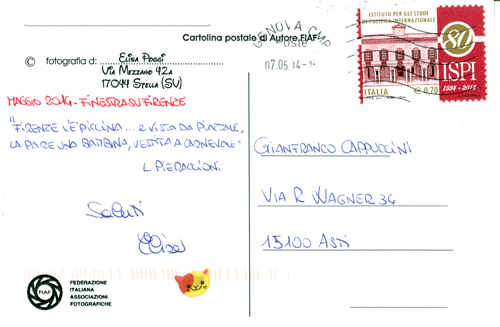 Cartolina postale di Autore FIAF
© fotografia di:
Elisa Poggi
Via Mezzano 42a
17044 Stella (SV)
MAGGIO 2014. FINESTRA SU FIRENZE
"FIRENZE L'È PICCINA... E VISTA DA PIAZZALE,
LA PARE UNA BAMBINA, VESTITA A CARNEVALE"
L. PIERACCIONI
Saluti
Elisa
FIAF
FEDERAZIONE
ITALIANA
ASSOCIAZIONI
FOTOGRAFICHE
GENOVA CMP
Poste
07.05 14-
ISTITUTO PER GLI STUDI
DI POLITICA INTERNAZIONALE
80
ISPI
1934 - 2014
ITALIA
€ 0,70
GIANFRANCO CAPPUCCINI
VIA R WAGNER 34
15100 ASTI